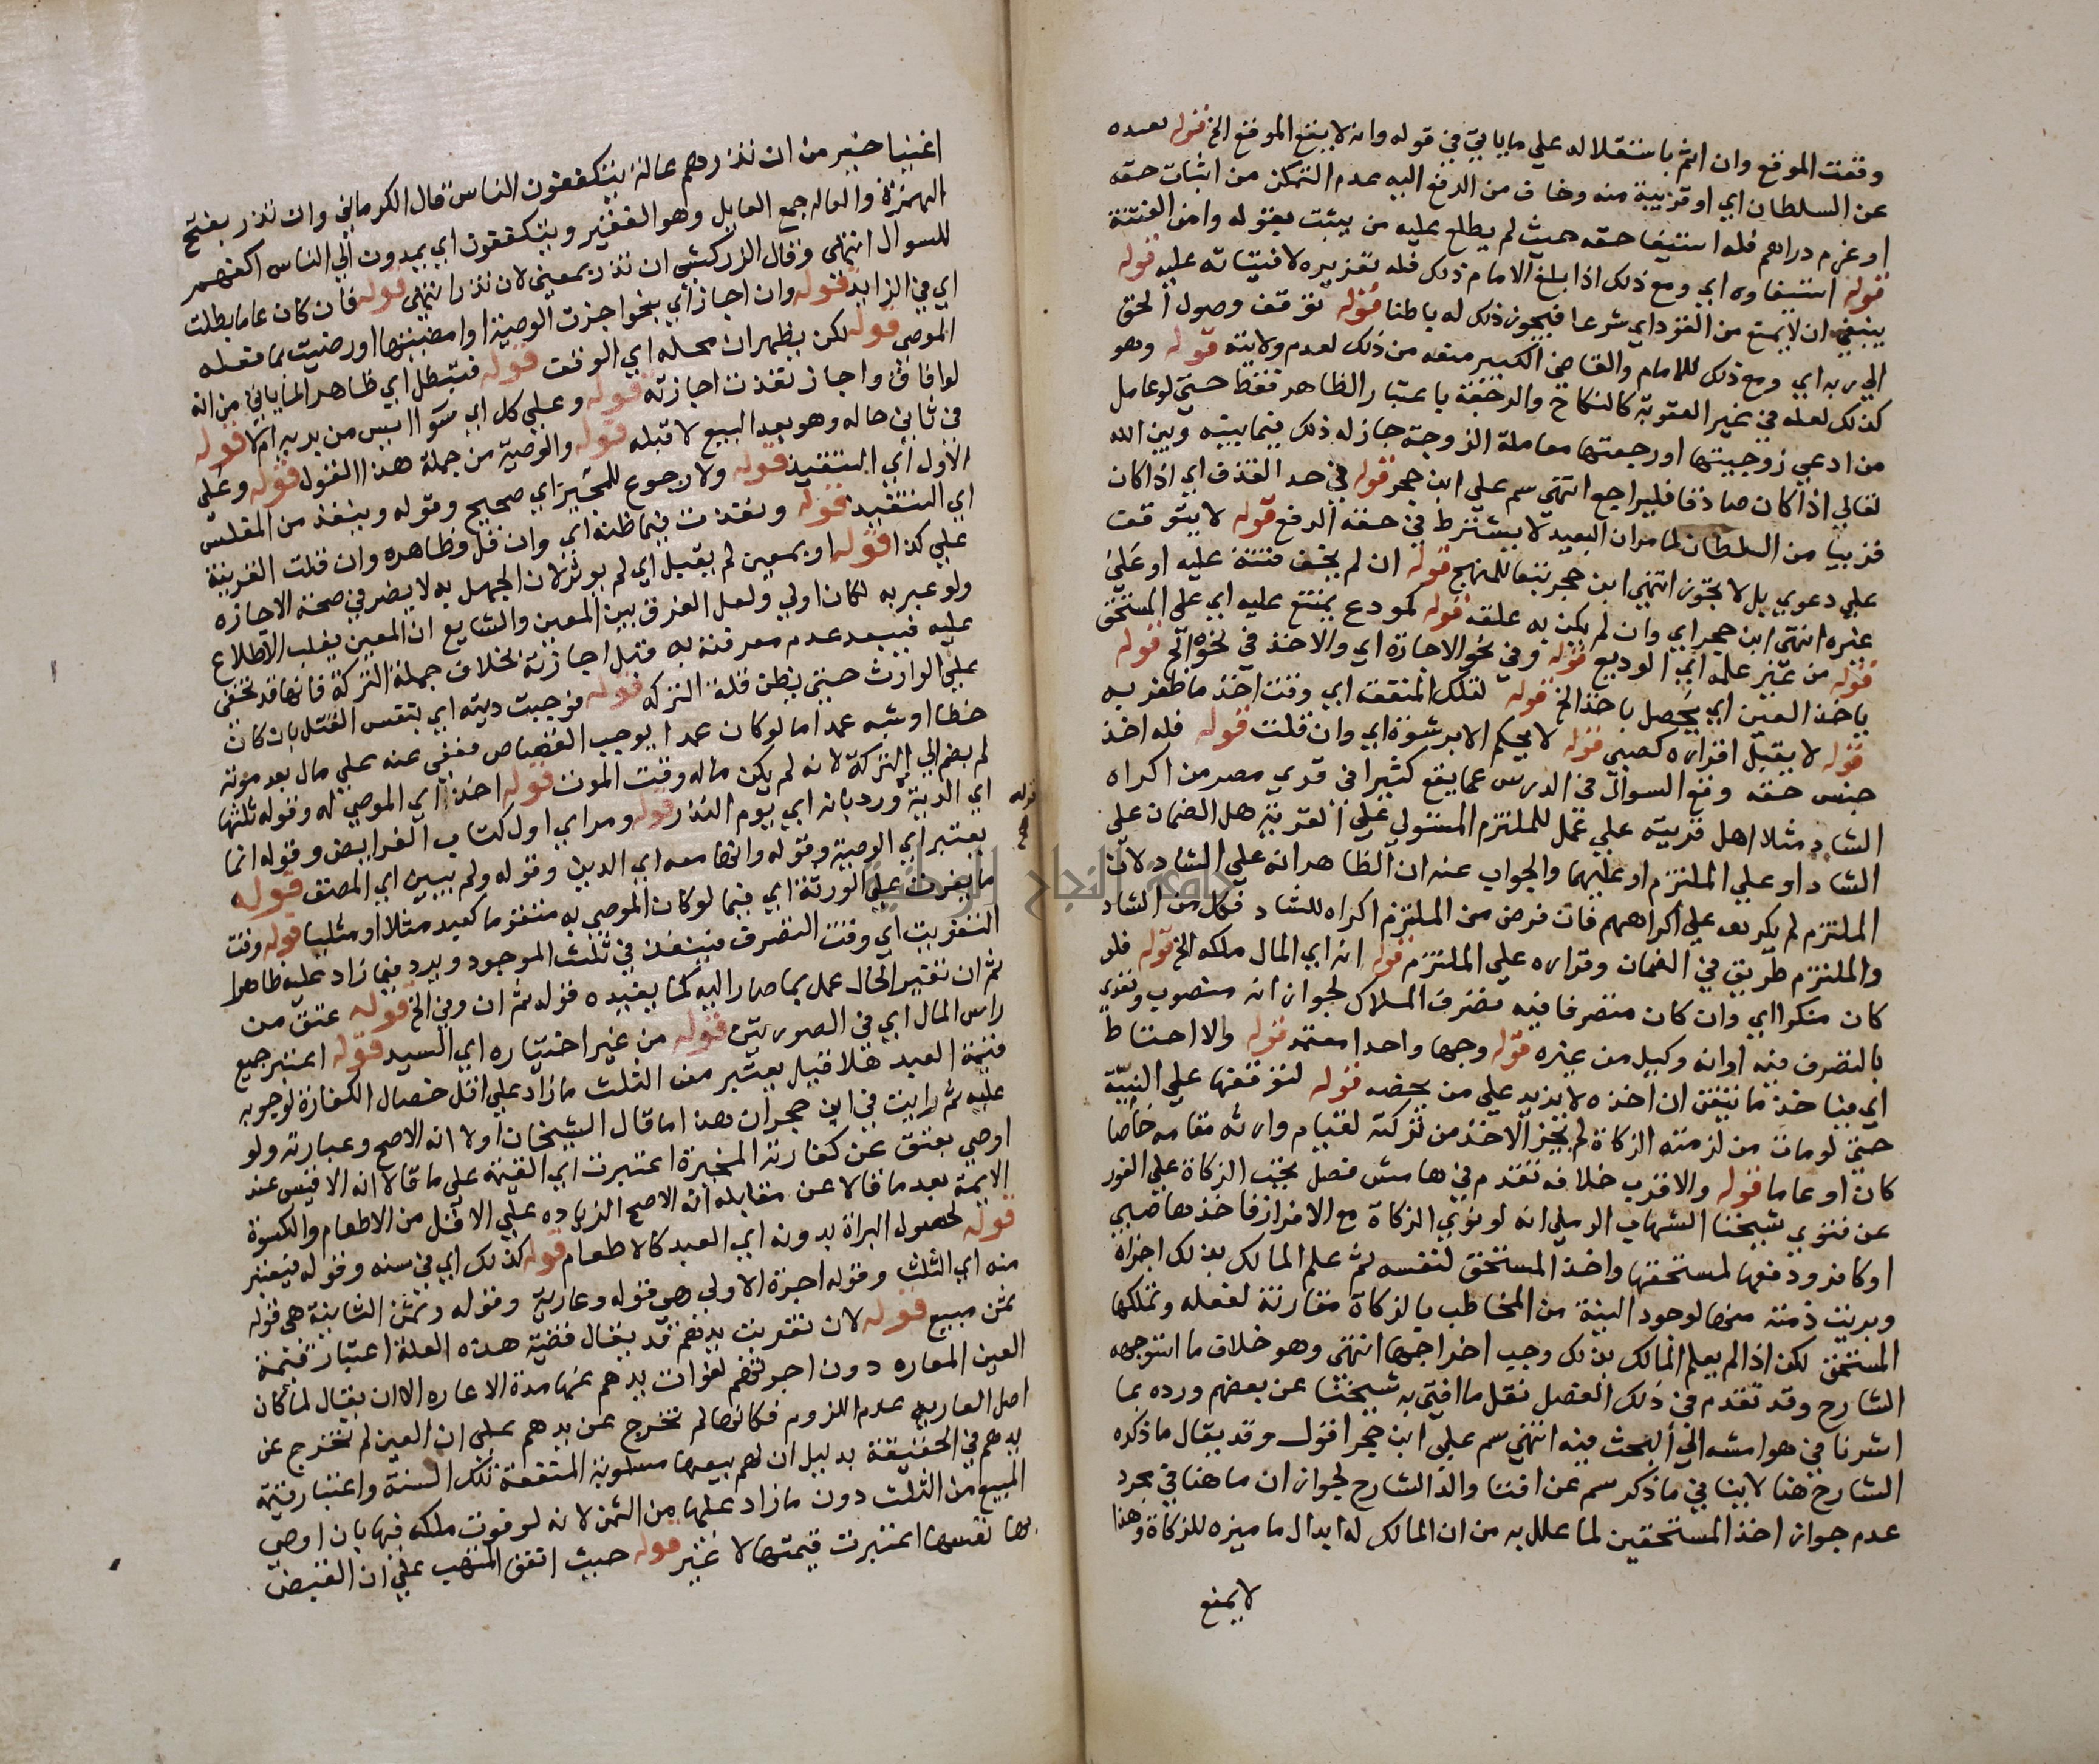 وقعت الموقع وان اثم باستقلاله علي ما ياتي في قوله وانه لا يقع الموقع الخ قوله لبعده
عن السلطان اي او قريبة منه وخاف من الرفع اليه عدم التمكن من اثبات حقه
او غرم دراهم فله استيفا حقه حيث لم يطلع عليه من يثبت بقوله وامن الفتنة
قوله استيفاوه اي ومع ذلك اذا بلغ الامام ذلك فله تعزيره لافتياته عليه قوله
ينبغي ان لا يمنع من القود اي شرعا فيجوز ذلك له باطنا قوله توقف وصول الحق
الي ربه اي ومع ذلك للامام والقاضي الكبير منعه من ذلك لعدم ولايته قوله وهو
كذلك لعله في غير العقوبة كالنكاح والرجعة باعتبار الظاهر فقط حتي لو عامل
من ادعي زوجيتها او رجعتها معاملة الزوجة جاز له ذلك فيما بينه وبين الله
تعالي اذا كان صادقا فليراجع انتهي سم علي ابن حجر قوله في حد القذف اي اذا كان
قريبا من السلطان لما مر ان البعيد لا يشترط في حقه الرفع قوله لا يتوقف
علي دعوي بل لا يجوز انتهي ابن حجر تبعا للمنهج قوله ان لم يخف فتنة عليه او علي
غيره انتهي ابن حجر اي وان لم يكن به علقه قوله كمودع يمتنع عليه اي علي المستحق
قوله من غير علمه اي الوديع قوله وفي نحو الاجازة اي والاخذ في نحو الخ قوله
باخذ العين اي يحصل باخذ الخ قوله لتلك المنفعة اي وقت اخذ ما ظفر به
قوله لا يقبل اقراره كصبي قوله لا يحكم الا برشوة اي وان قلت قوله فله اخذ
جنس حقه وقع السوال في الدرس عما يقع كثيرا في قري مصر من اكراه
الشاد مثلا اهل قريته علي عمل للملتزم المستولي علي القرية هل الضمان علي
الشاد او علي الملتزم او عليهما والجواب عنه ان الظاهر انه علي الشاد لان
الملتزم لم يكرهه علي اكراههم فان فرض من الملتزم اكراه للشاد فكل من الشاد
والملتزم طريق في الضمان وقراره علي الملتزم قوله انه اي المال ملكه الخ قوله فلو
كان منكرا اي وان كان متصرفا فيه تصرف الملاك لجواز انه مغصوب ونفوذ
بالتصرف فيه او انه وكيل من غيره قوله وجها واحدا معتمد قوله والا احتاط
اي فياخذ ما تيقن ان اخذه لا يزيد علي من يخصه قوله لتوقفها علي النية
حتي لو مات من لزمته الزكاة لم يجز الاخذ من تركته لقيام وارثه مقامه خاصا
كان او عاما قوله والاقرب خلافه تقدم في هامش فصل تجب الزكاة علي الفور
عن فتوي شيخنا الشهاب الرملي انه لو نوي الزكاة مع الافراز فاخذها صبي
او كافر ودفعها لمستحقها واخذ المستحق لنفسه ثم علم المالك بذلك اجزاه
وبريت ذمته منها لوجود النية من المخاطب بالزكاة مقارنة لفعله وتملكها
المستحق لكن اذا لم يعلم المالك بذلك وجب اخراجها انتهي وهو خلاف ما استوجهه
الشارح وقد تقدم في ذلك الفصل نقل ما افتي به شيخنا عن بعضهم ورده بما
اشرنا في هوامشه الي البحث فيه انتهي سم علي ابن حجر اقول وقد يقال ما ذكره
الشارح هنا لا ينافي ما ذكر سم عن افتا والد الشارح لجواز ان ما هنا في مجرد
عدم جواز اخذ المستحقين لما علل به من ان المالك له ابدال ما ميزه للزكاة وهذا
لا يمنع
اغنيا خير من ان تذرهم عالة يتكففون الناس قال الكرماني وان تذر بفتح
الهمزة والعاله جمع العايل وهو الفقير ويتكففون اي يمدون الي الناس اكفهم
للسوال انتهي وقال الزركشي ان تذر بمعني لان تذر انتهي قوله فان كان عاما بطلت
اي في الزايد قوله وان اجاز اي بنحو اجزت الوصية او امضيتها او رضيت بما فعله
الموصي قوله لكن يظهر ان محله اي الوقف قوله فتبطل اي ظاهر لما ياتي من انه
لو افاق واجاز نفذت اجازته قوله وعلي كل اي سوا ايس من بريه ام لا قوله
في ثاني حاله وهو بعد البيع لا قبله قوله والوصية من جملة هذا القول قوله وعلي
الاول اي التنفيذ قوله ولا رجوع للمجيز اي صحيح وقوله وينفذ من المفلس
اي التنفيذ قوله ونفذت فيما ظنه اي وان قل وظاهره وان قلت القرينة
علي كذا قوله او بمعين لم يقبل اي لم يوثر لان الجهل به لا يضر في صحة الاجازه
ولو عبر به لكان اولي ولعل الفرق بين المعين والشايع ان المعين يغلب الاطلاع
عليه فيبعد عدم معرفته به قبل اجازته بخلاف جملة التركة فانها قد تخفي
علي الوارث حتي يظن قلة التركه قوله فوجبت ديته اي بنفس القتل بان كان
خطا او شبه عمد اما لو كان عمدا يوجب القصاص فعفي عنه علي مال بعد موته
لم يضم الي التركة لانه لم يكن ماله وقت الموت قوله اخذ اي الموصي له وقوله ثلثها
اي الدية ورد بانه اي يوم النذر قوله ومر اي اول كتاب الفرايض وقوله انما
يعتبر اي الوصية وقوله وانها معه اي الدين وقوله ولم يبين اي المصنف قوله
ما يفوت علي الورثة اي فيما لو كان الموصي به متقوما كعبد مثلا او مثليا قوله وقت
التفويت اي وقت التصرف فينفذ في ثلث الموجود ويرد فيما زاد عليه ظاهرا
ثم ان تغير الحال عمل بما صار اليه كما يفيده قوله ثم ان وفي الخ قوله عتق من
راس المال اي في الصورتين قوله من غير اختياره اي السيد قوله اعتبر جميع
قيمة العبد هلا قيل يعتبر من الثلث ما زاد علي اقل خصال الكفارة لوجوبه
عليه ثم رايت في ابن حجر ان هذا ما قال الشيخان اولا انه الاصح وعبارته ولو
اوصي بعتق عن كفارته المخيرة اعتبرت اي القيمة علي ما قالا انه الاقيس عند
الايمة بعد ما قالا عن مقابله انه الاصح الزياده علي الاقل من الاطعام والكسوة
قوله لحصول البراة بدونه اي العبد كالاطعام قوله كذلك اي في سنه وقوله فيعتبر
منه اي الثلث وقوله اجرة الاولي هي قوله وعارية وقوله وثمن الثانية هي قوله
ثمن مبيع قوله لان تفويت يدهم قد يقال قضية هذه العلة اعتبار قيمة
العين المعاره دون اجرتهم لفوات يدهم عنها مدة الاعاره الا ان يقال لما كان
اصل العارية عدم اللزوم فكانها لم تخرج عن يدهم علي ان العين لم تخرج عن
يدهم في الحقيقة بدليل ان لهم بيعها مسلوبة المنفعة تلك السنة واعتبار قيمة
المبيع من الثلث دون ما زاد عليها من الثمن لانه لو فوت ملكه فيها بان اوصي
بها نفسها اعتبرت قيمتها لا غير قوله حيث اتفق المذهب علي ان القبض
قوله
جامعة النجاح الوطنية